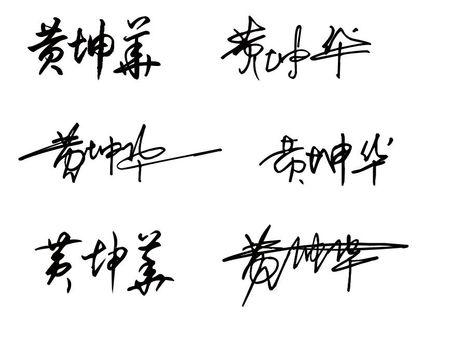 黄坤華 黄坤华
黄坤华 黄坤华
黄坤華 黄坤华